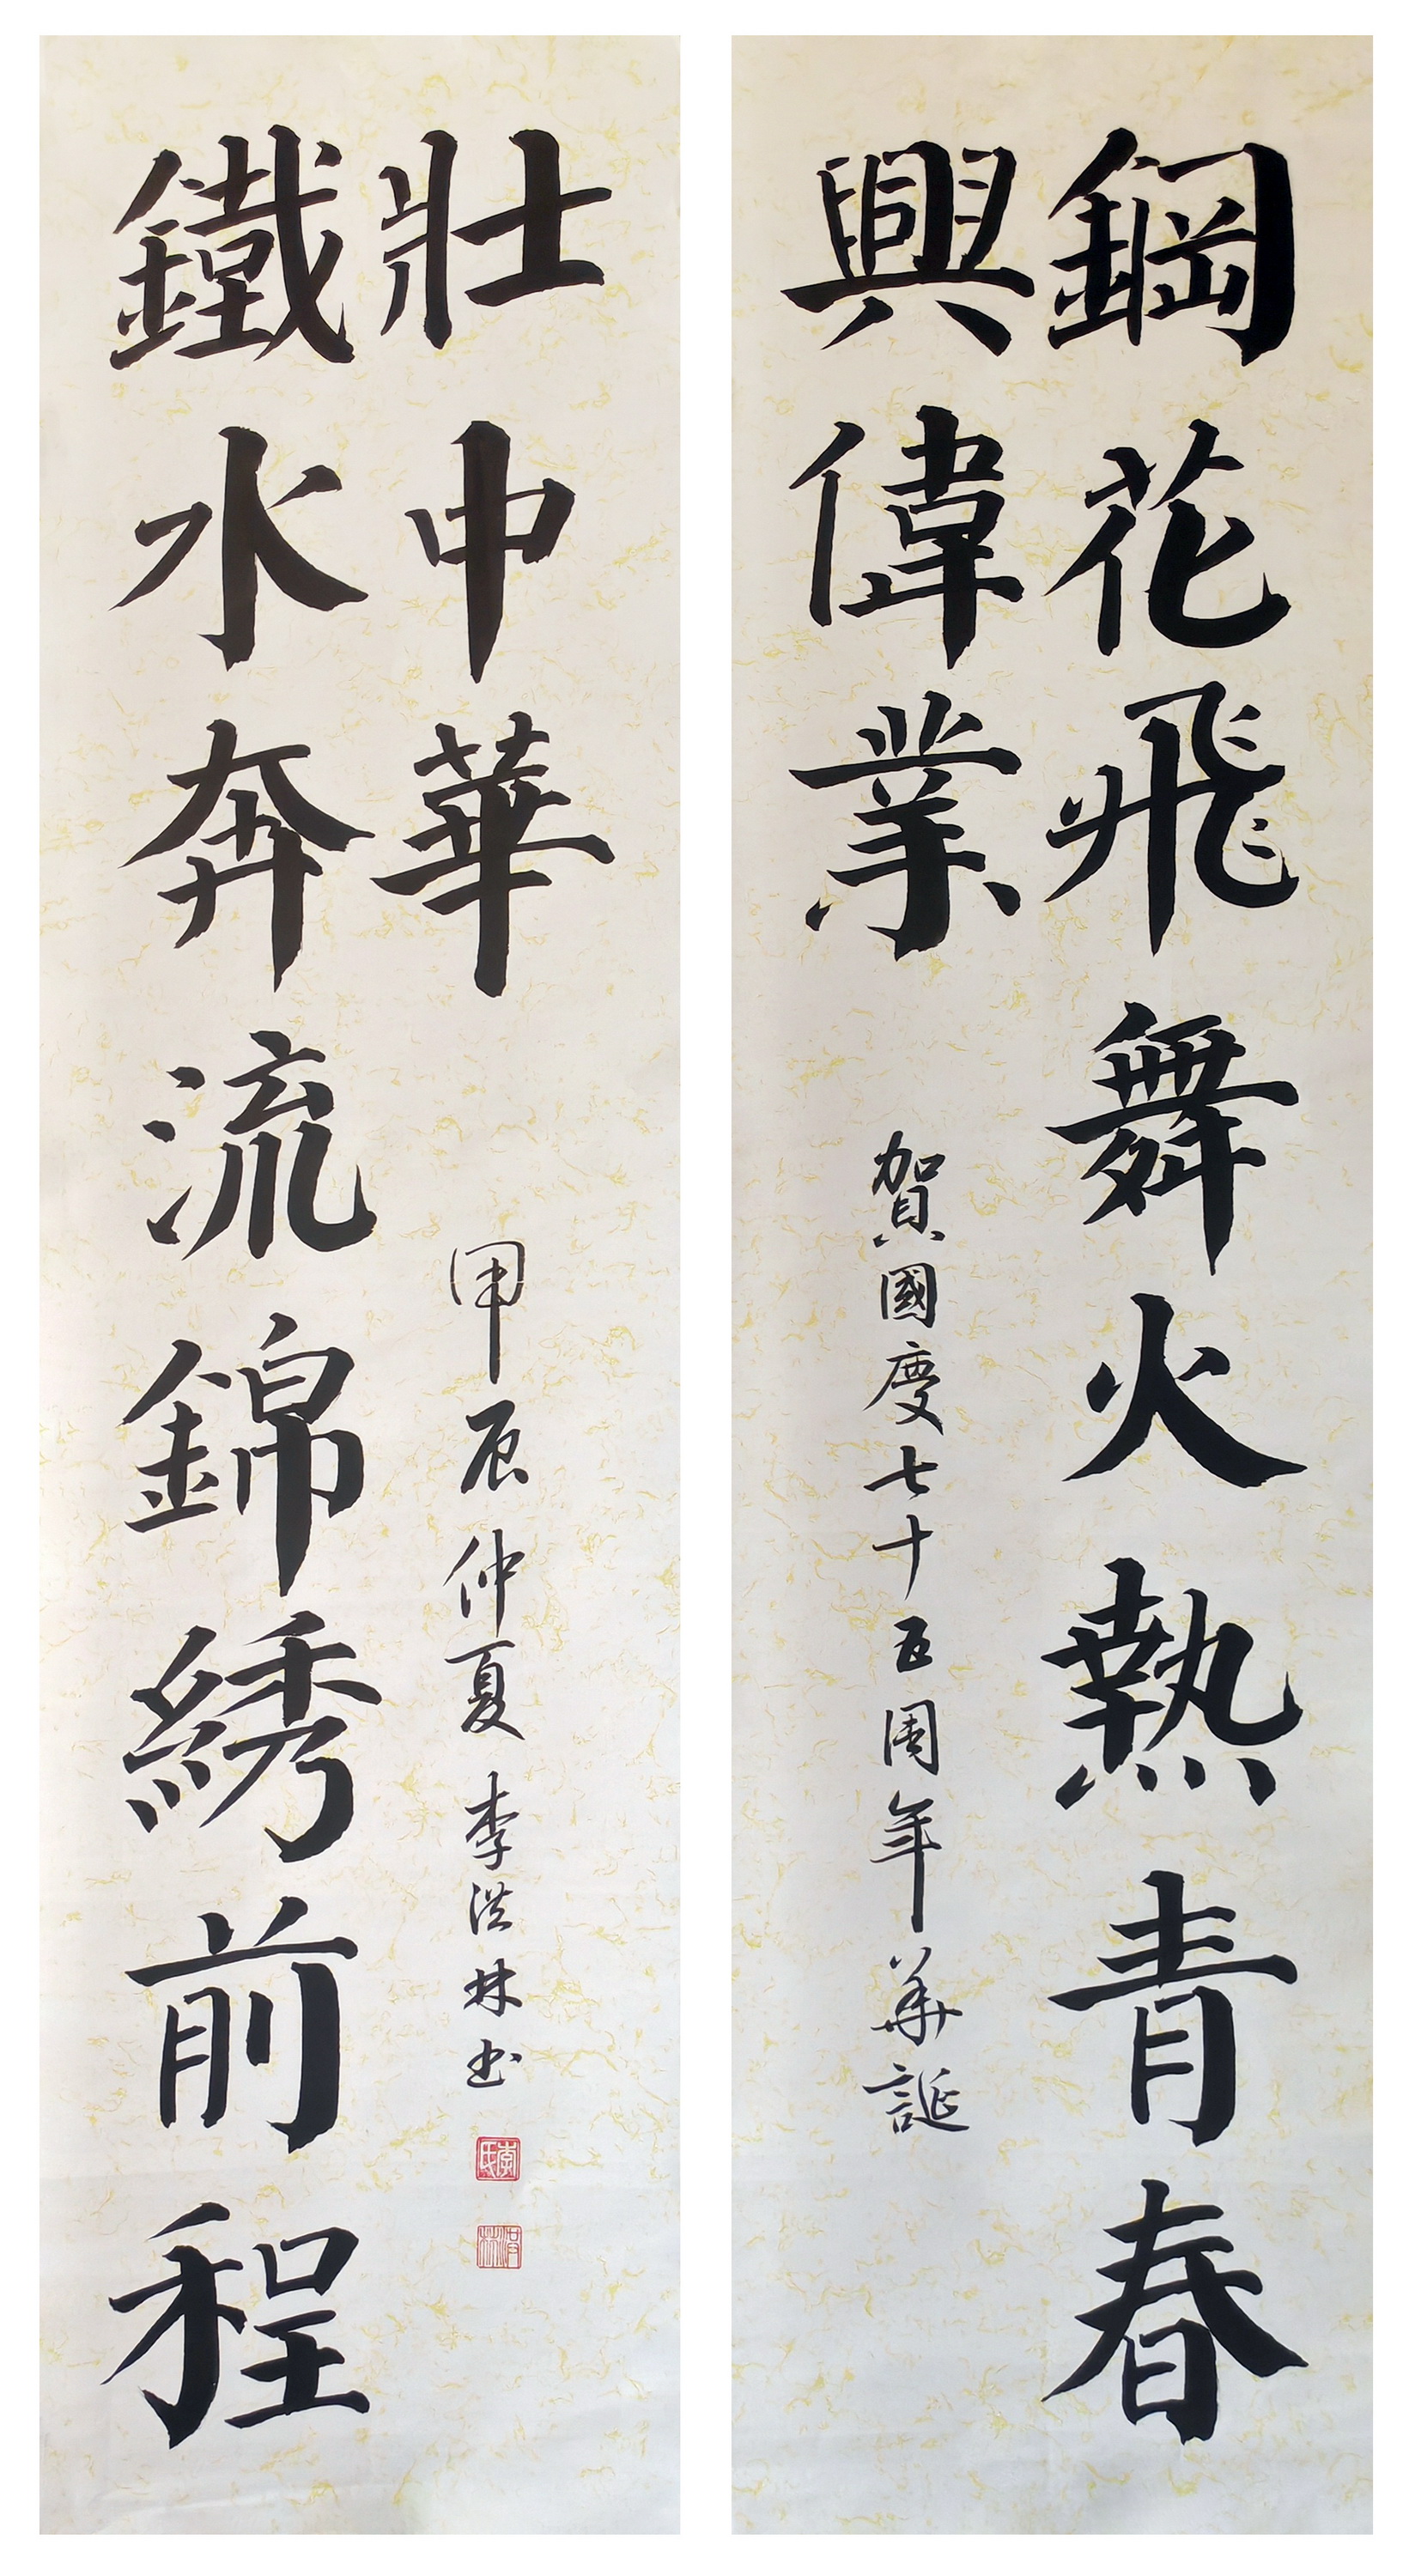 鋼花飛舞火熱青春
興偉業
賀國慶七十五周年華誕
鐵水奔流錦綉前程
壯中華
甲辰仲夏李洪林书
李氏
洪林